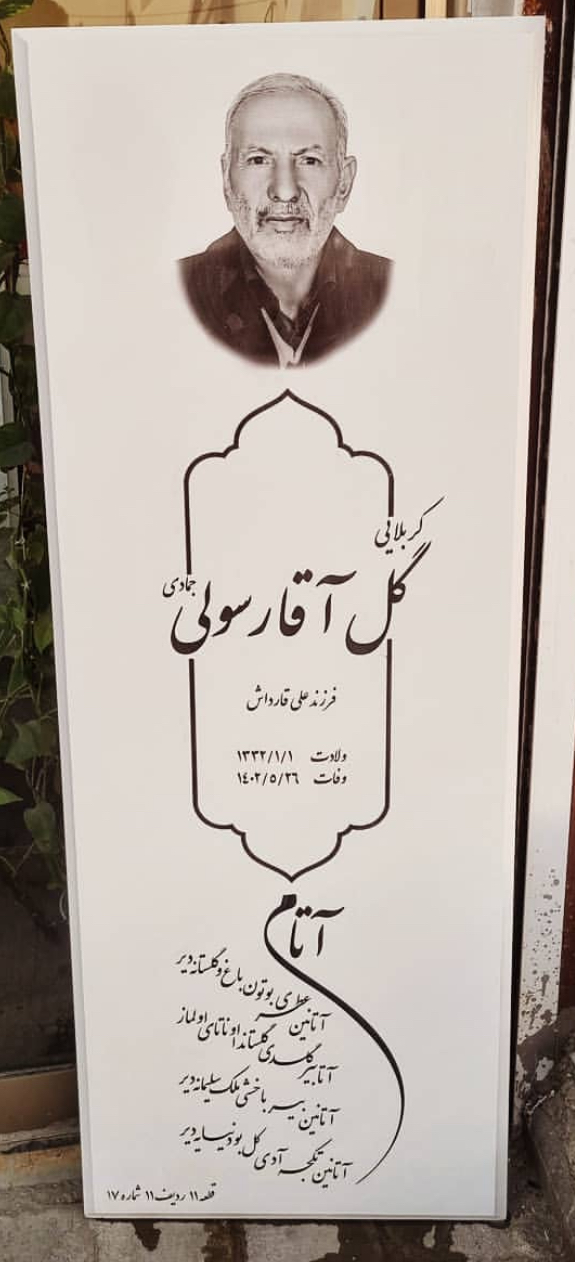 کربلایی
گل آقا رسولی
جمادی
فرزند علی قارداش
ولادت ۱۳۳۲/۱/۱
وفات ۱۴۰۲/۵/۲۶
آتام
آتانین عطری بوتون باغ و گلستانه دیر
آتا بیر گلدی گلستاندا اونا تای اولماز
آتانین بیر باخشی ملک سلیمانه دیر
آتانین تکجه آدی کل بو دنیایه دیر
قطعه ۱۱ ردیف ۱۱ شماره ۱۷